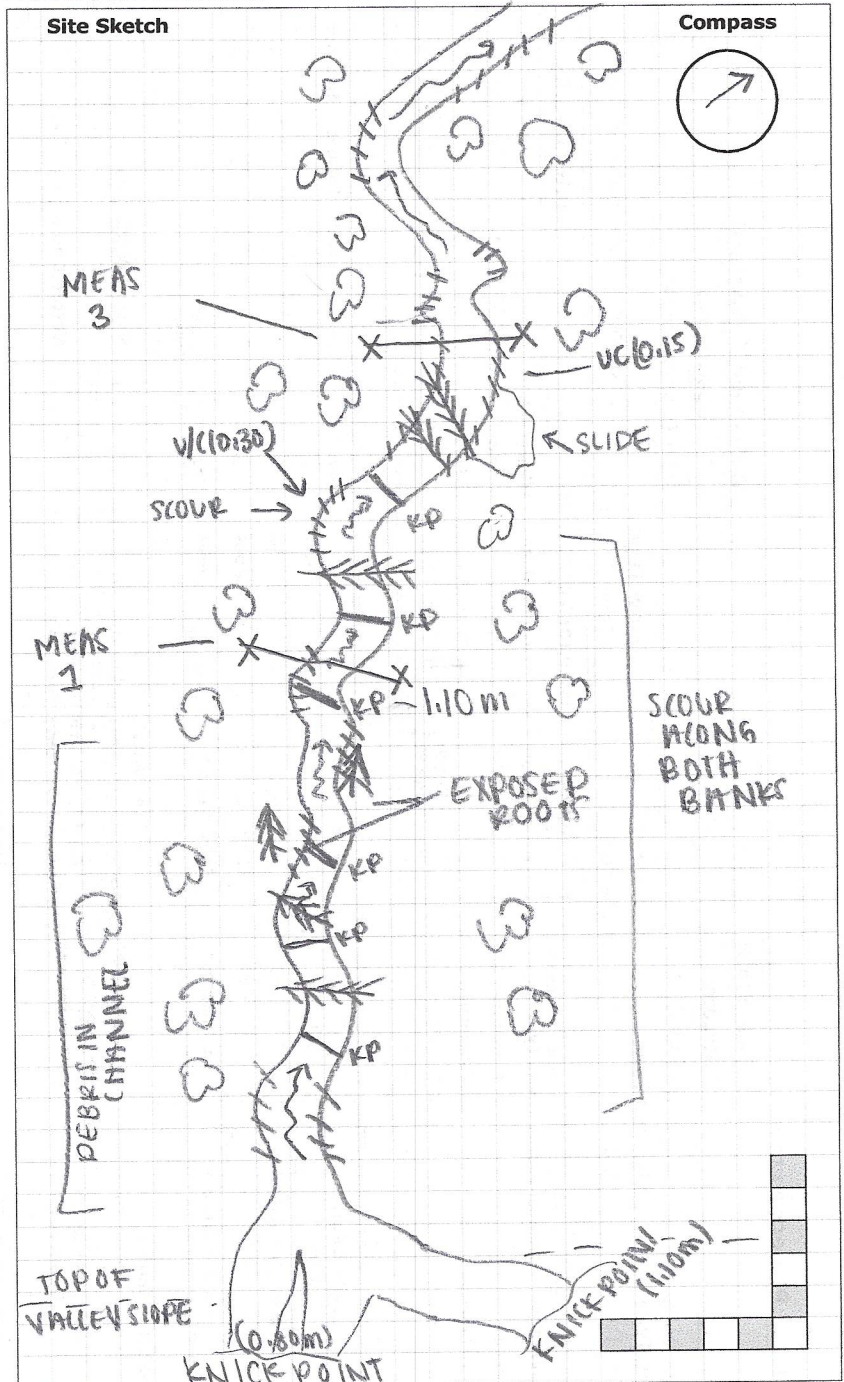 Site Sketch
Compass
MEAS
3
UC(0.15)
SLIDE
V/C(0.30)
SCOUR
KP
KP
MEAS
1
KP - 1.10 m
SCOUR
ALONG
BOTH
BANKS
EXPOSED
ROOTS
KP
KP
KP
DEBRIS IN
CHANNEL
TOP OF
VALLEY SLOPE
(0.80m)
KNICK POINT
KNICK POINT
(1.10m)